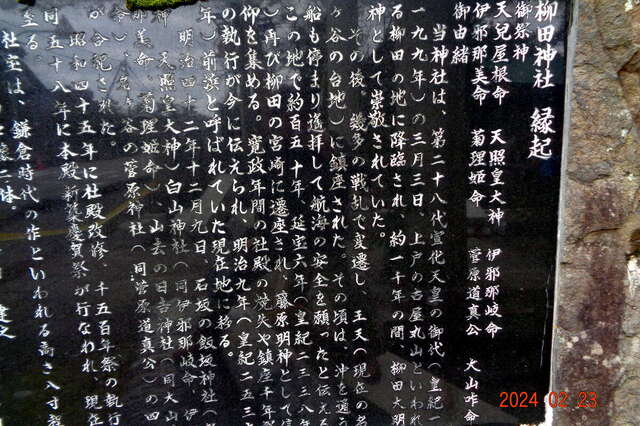 柳田神社 縁起
御祭神
天兒屋根命 天照皇大神 伊邪那岐命 大山咋命
伊邪那美命 菊理姫命 菅原道真公
御由緒
当神社は、第二十八代宣化天皇の御代(皇紀一
一九九年)の三月三日、上戸の古屋丸山といわれ
る柳田の地に降臨され、約一千年の間、柳田大明
神として崇敬されていた。
その後、幾多の戦乱で変遷し、王天(現在の名
ヶ谷の台地)に鎮座された。その頃は、沖を通う
船も停まり遙拝して航海の安全を願ったと伝える
この地で約百五十年、延宝六年(皇紀二三三八年
)再び柳田の宮崎に遷座され、藤原明神として信
仰を集める。寛政年間の社殿の焼失や鎮座千年祭
の執行が今に伝えられ、明治九年(皇紀二五三
年)前濱と呼ばれていた現在地に移る。
明治四十二年十二月九日、石坂の飯坂神社(
神、天照皇大神)白山神社(同伊邪那岐命、伊
邪那美命、菊理姫命)、山去の日吉神社(同大山
命)、谷の菅原神社(同菅原道真公)の四
が合祀された。
昭和四十五年に社殿改修、千五百年祭の執行
同五十八年に本殿新築慶賀祭が行なわれ、現在
至る。
社宝は、鎌倉時代の作といわれる高さ八寸程
2024 02 23